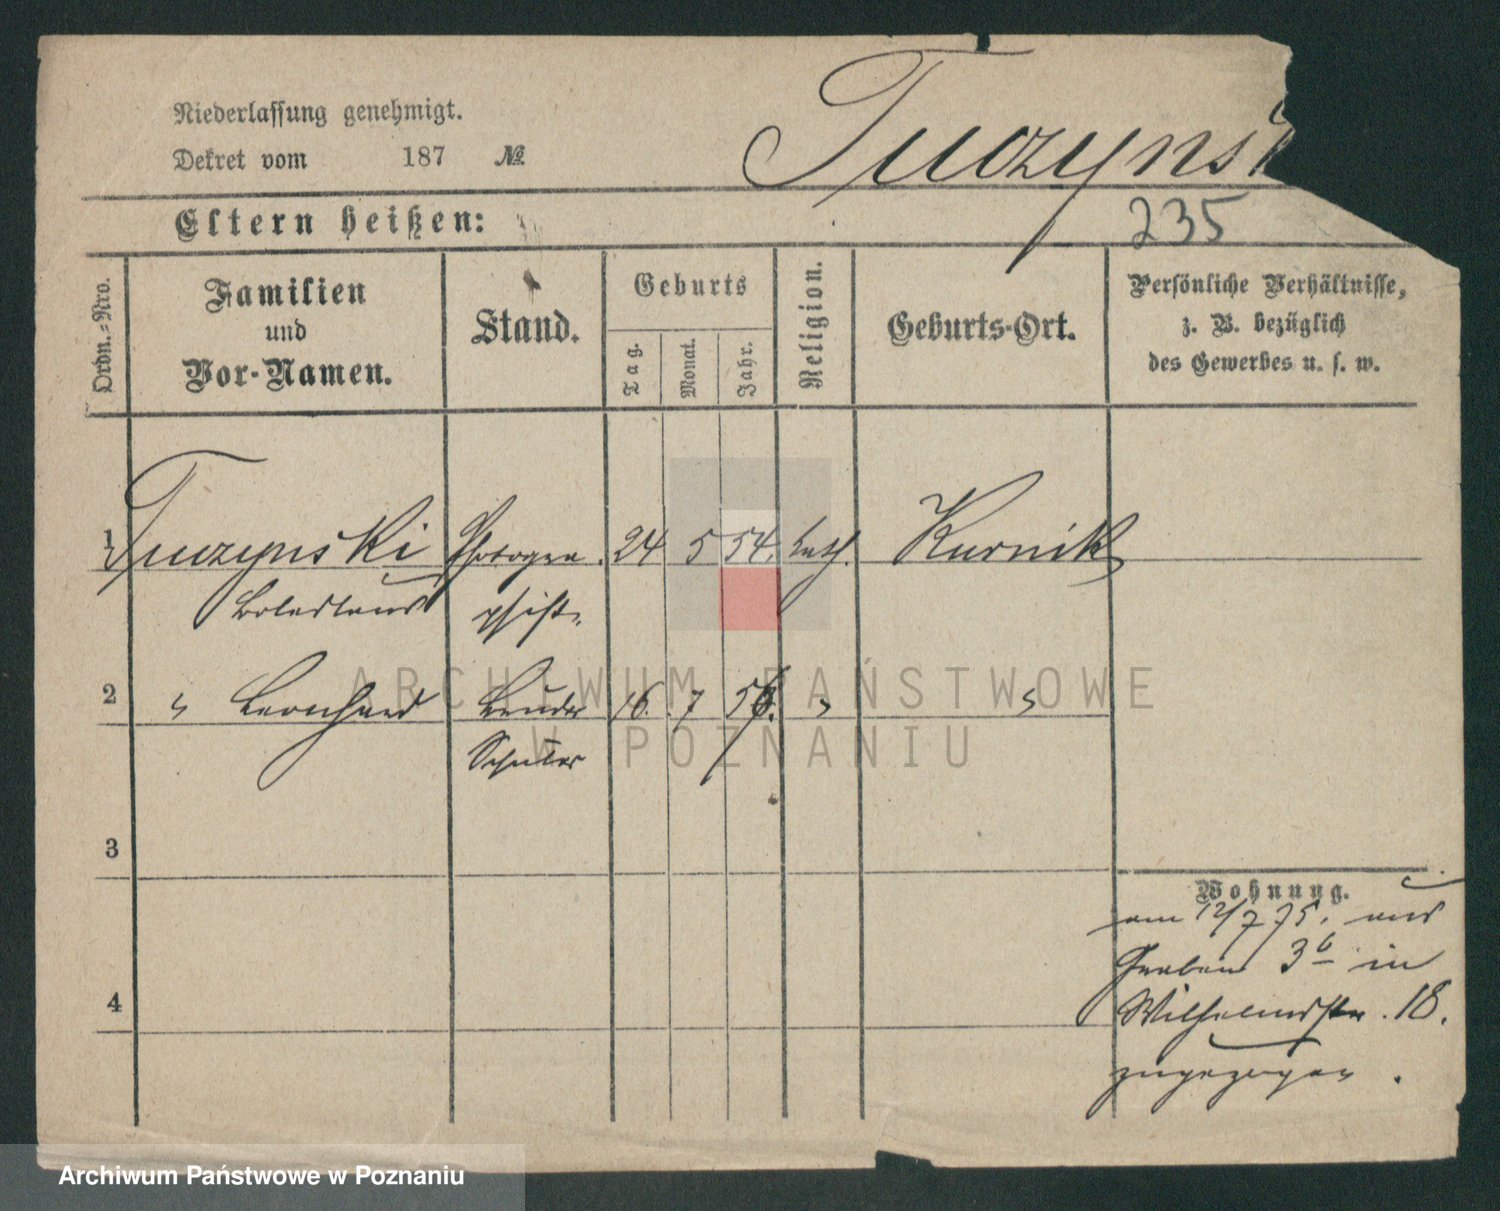 Niederlassung genehmigt.
Dekret vom 187 №
Tuczynsk
Eltern heißen:
235
Ordn.-Nro.
Familien
und
Vor-Namen.
Stand.
Geburts
Tag.
Monat.
Jahr.
Religion.
Geburts-Ort.
Persönliche Verhältnisse,
z. B. bezüglich
des Gewerbes u. s. w.
1 Tuczynski Photogra 24 5 54. kath. Kurnik
Boleslaus phist.
2 " Bernhard Bruder 16. 7 56. " "
Schüler
3
4
Wohnung.
am 12/7 75. aus
Graben 3b in
Wilhelmstr. 18.
zugezogen.
ARCHIWUM PAŃSTWOWE
W POZNANIU
Archiwum Państwowe w Poznaniu